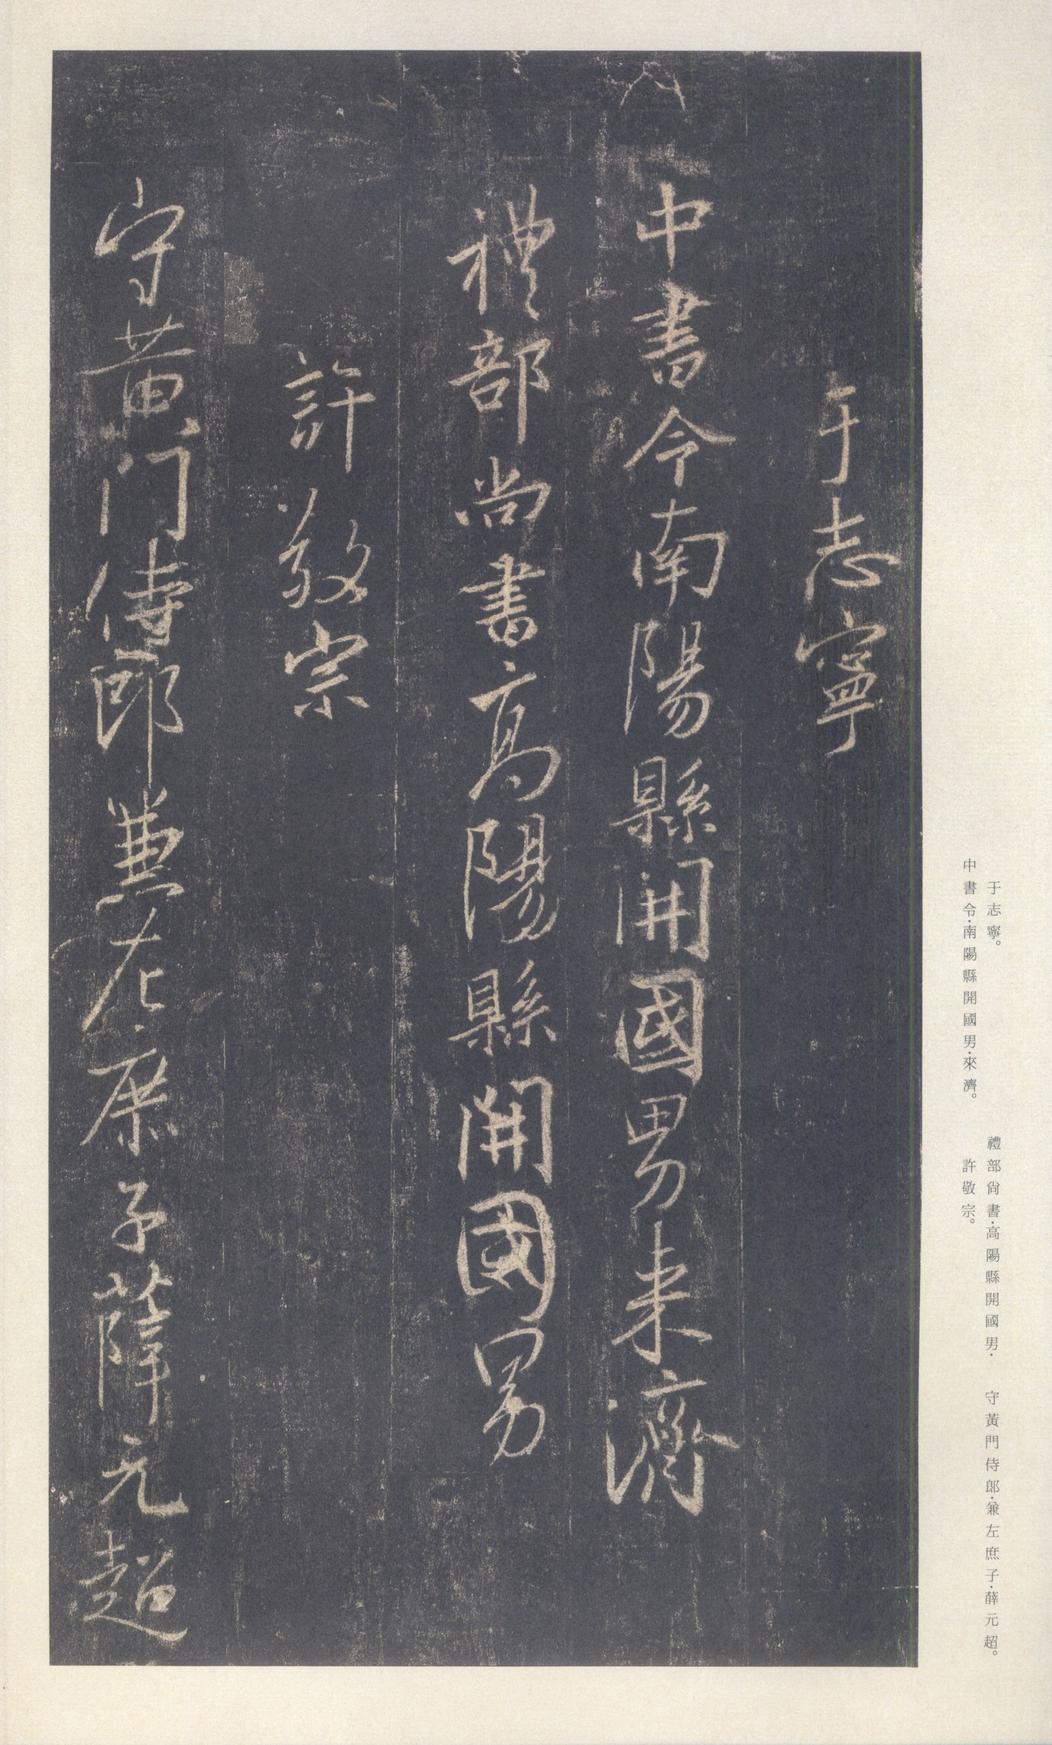 于志寧
中書令南陽縣開國男来濟
禮部尚書高陽縣開國男
許敬宗
守黄門侍郎兼左庶子薛元超
于志寧。
中書令·南陽縣開國男·來濟。
禮部尙書·高陽縣開國男·
許敬宗。
守黃門侍郎·兼左庶子·薛元超。